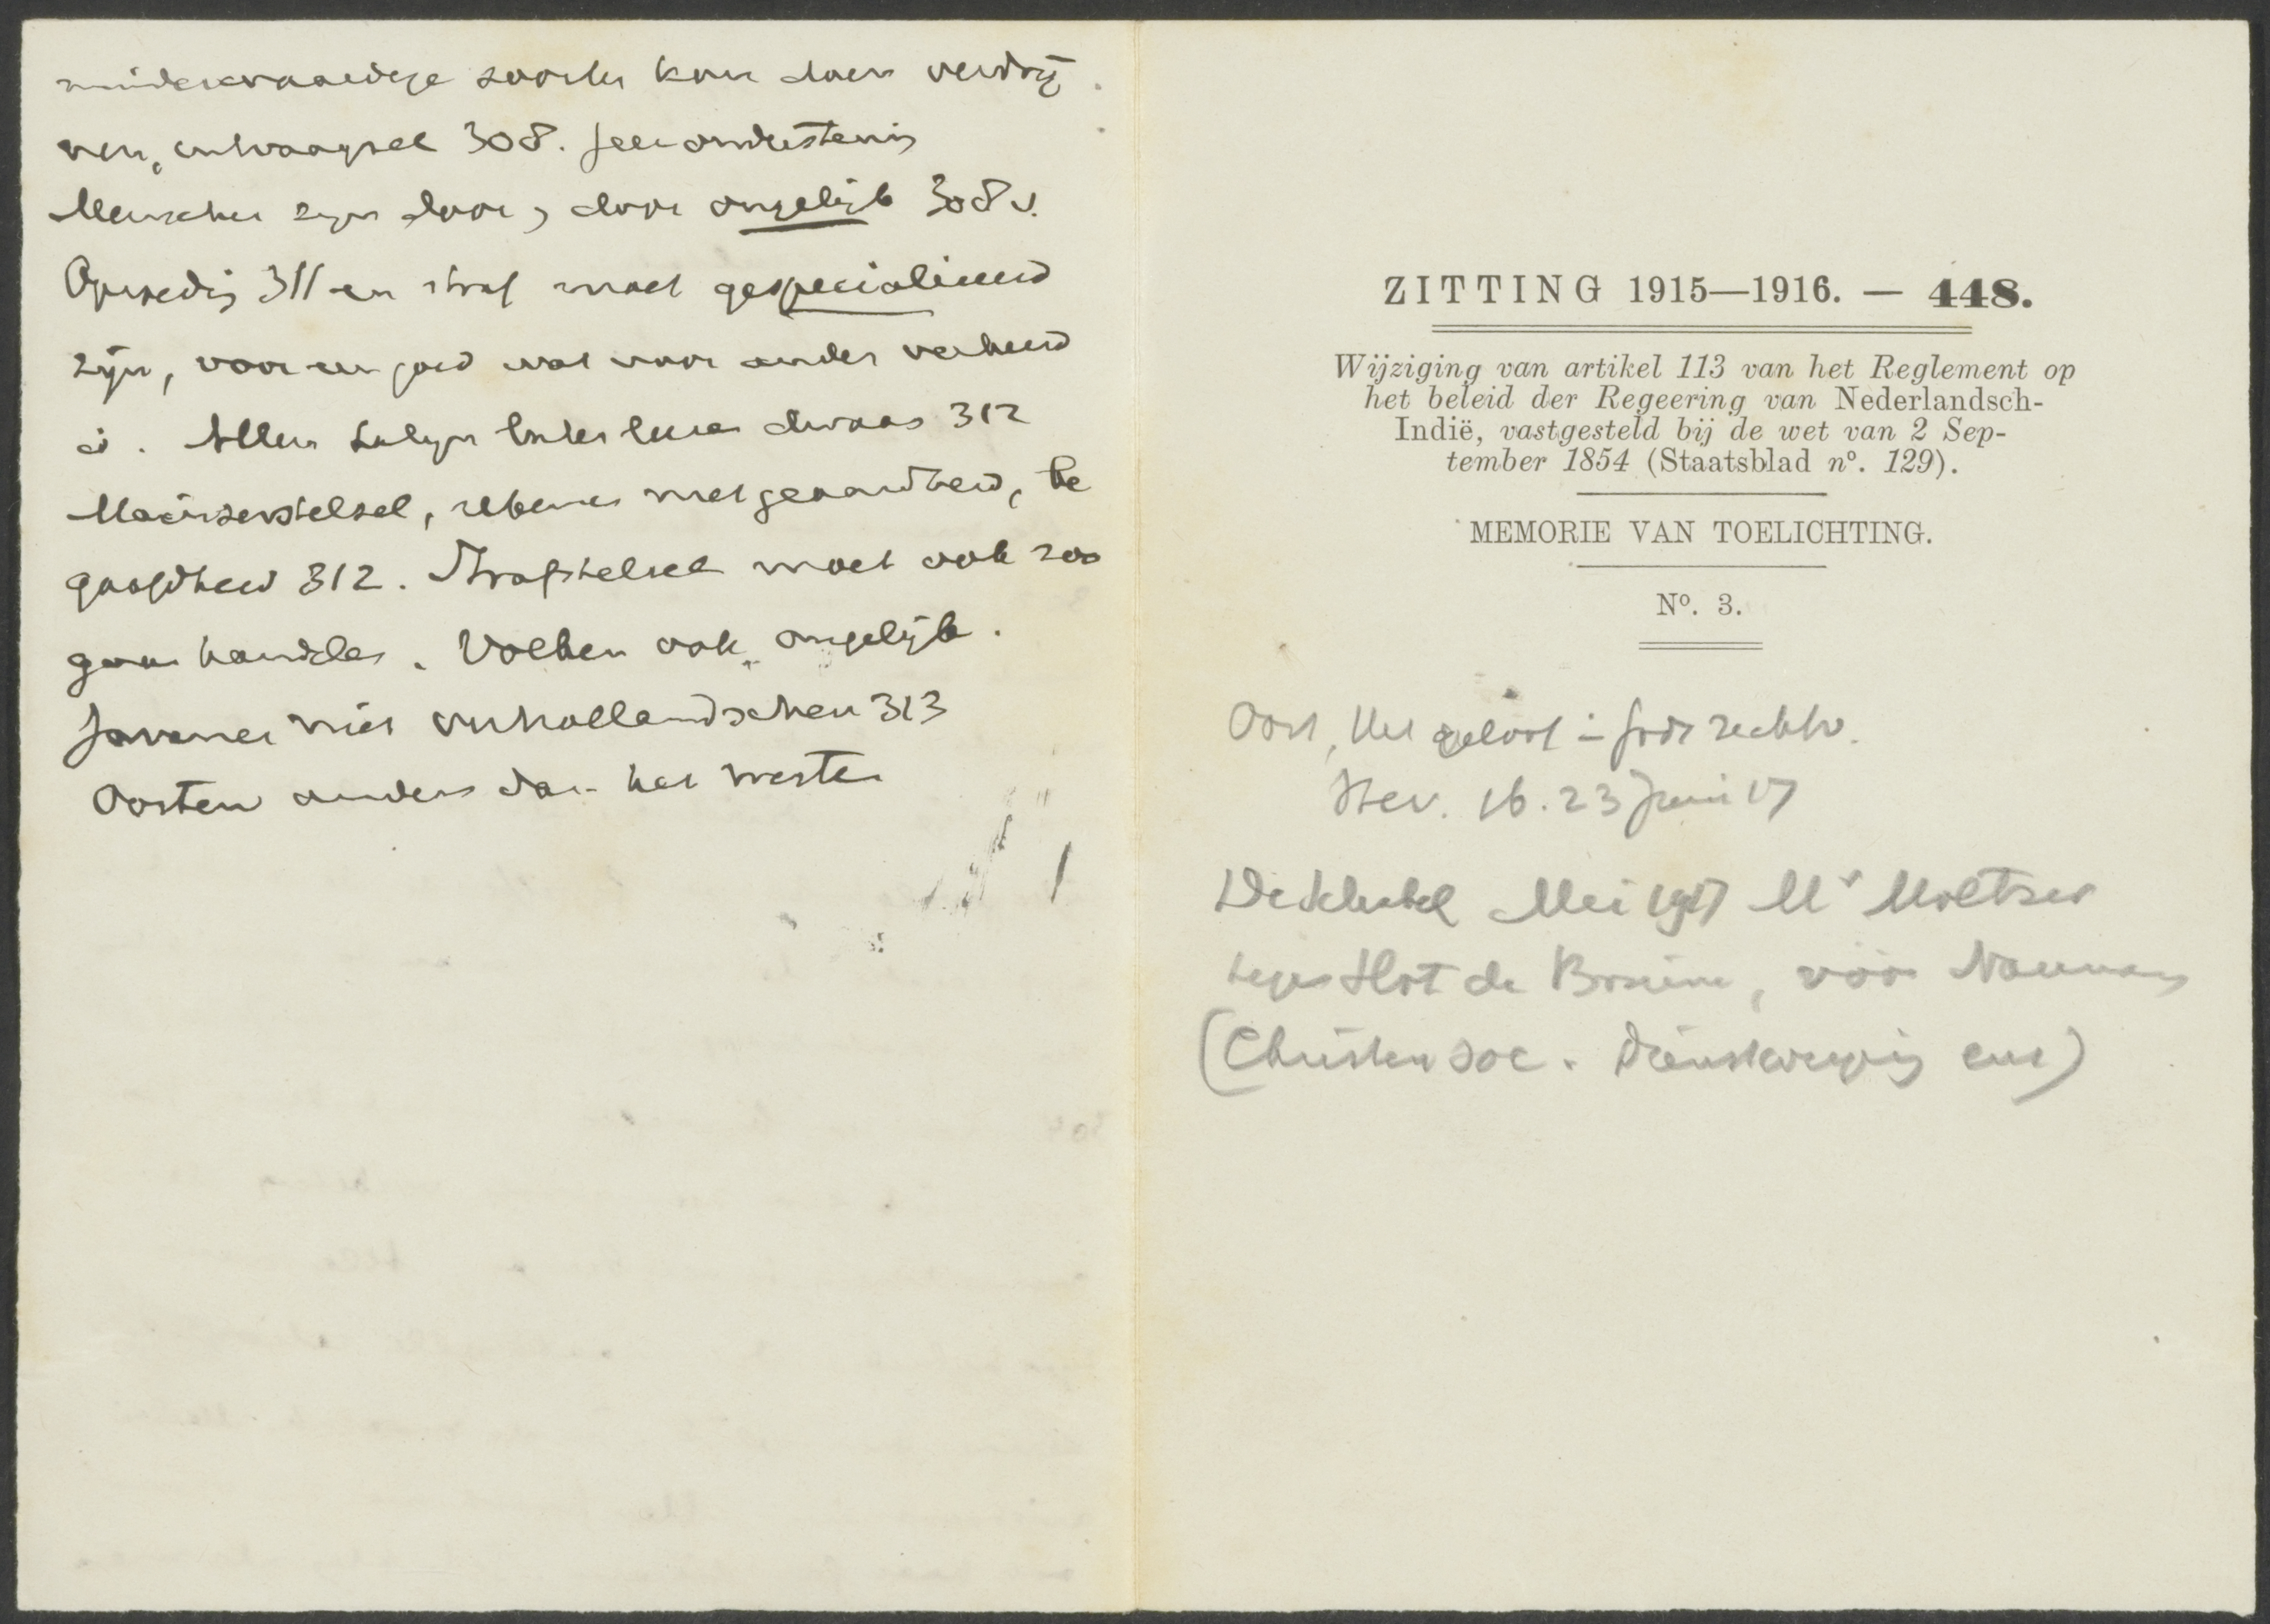 minderwaardige soorten kan doen verdrij
ven, 308.
Menschen zyn door, door ongelijk 308 v.
311 en straf moet gespecialiseerd
zijn, voor een goed wat voor ander verkeerd
is. Allen dwaas 312
stelsel, rekenen met geaardheid, be
gaafdheid 312. Strafstelsel moet ook zoo
gaan handelen. Volken ook ongelijk.
Javanen niet verhollandschen 313
Oosten anders dan het westen
ZITTING 1915—1916. — 448.
Wijziging van artikel 113 van het Reglement op
het beleid der Regeering van Nederlandsch-
Indië, vastgesteld bij de wet van 2 Sep-
tember 1854 (Staatsblad nº. 129).
MEMORIE VAN TOELICHTING.
Nº. 3.
Oort, Het geloof in Gods rechtv.
Herv. 16. 23 Juni 17
De Mei 1917 Mr Moltzer
tegen Slot de Bruine, vóór
(Christen soc. Dienstweigering enz)